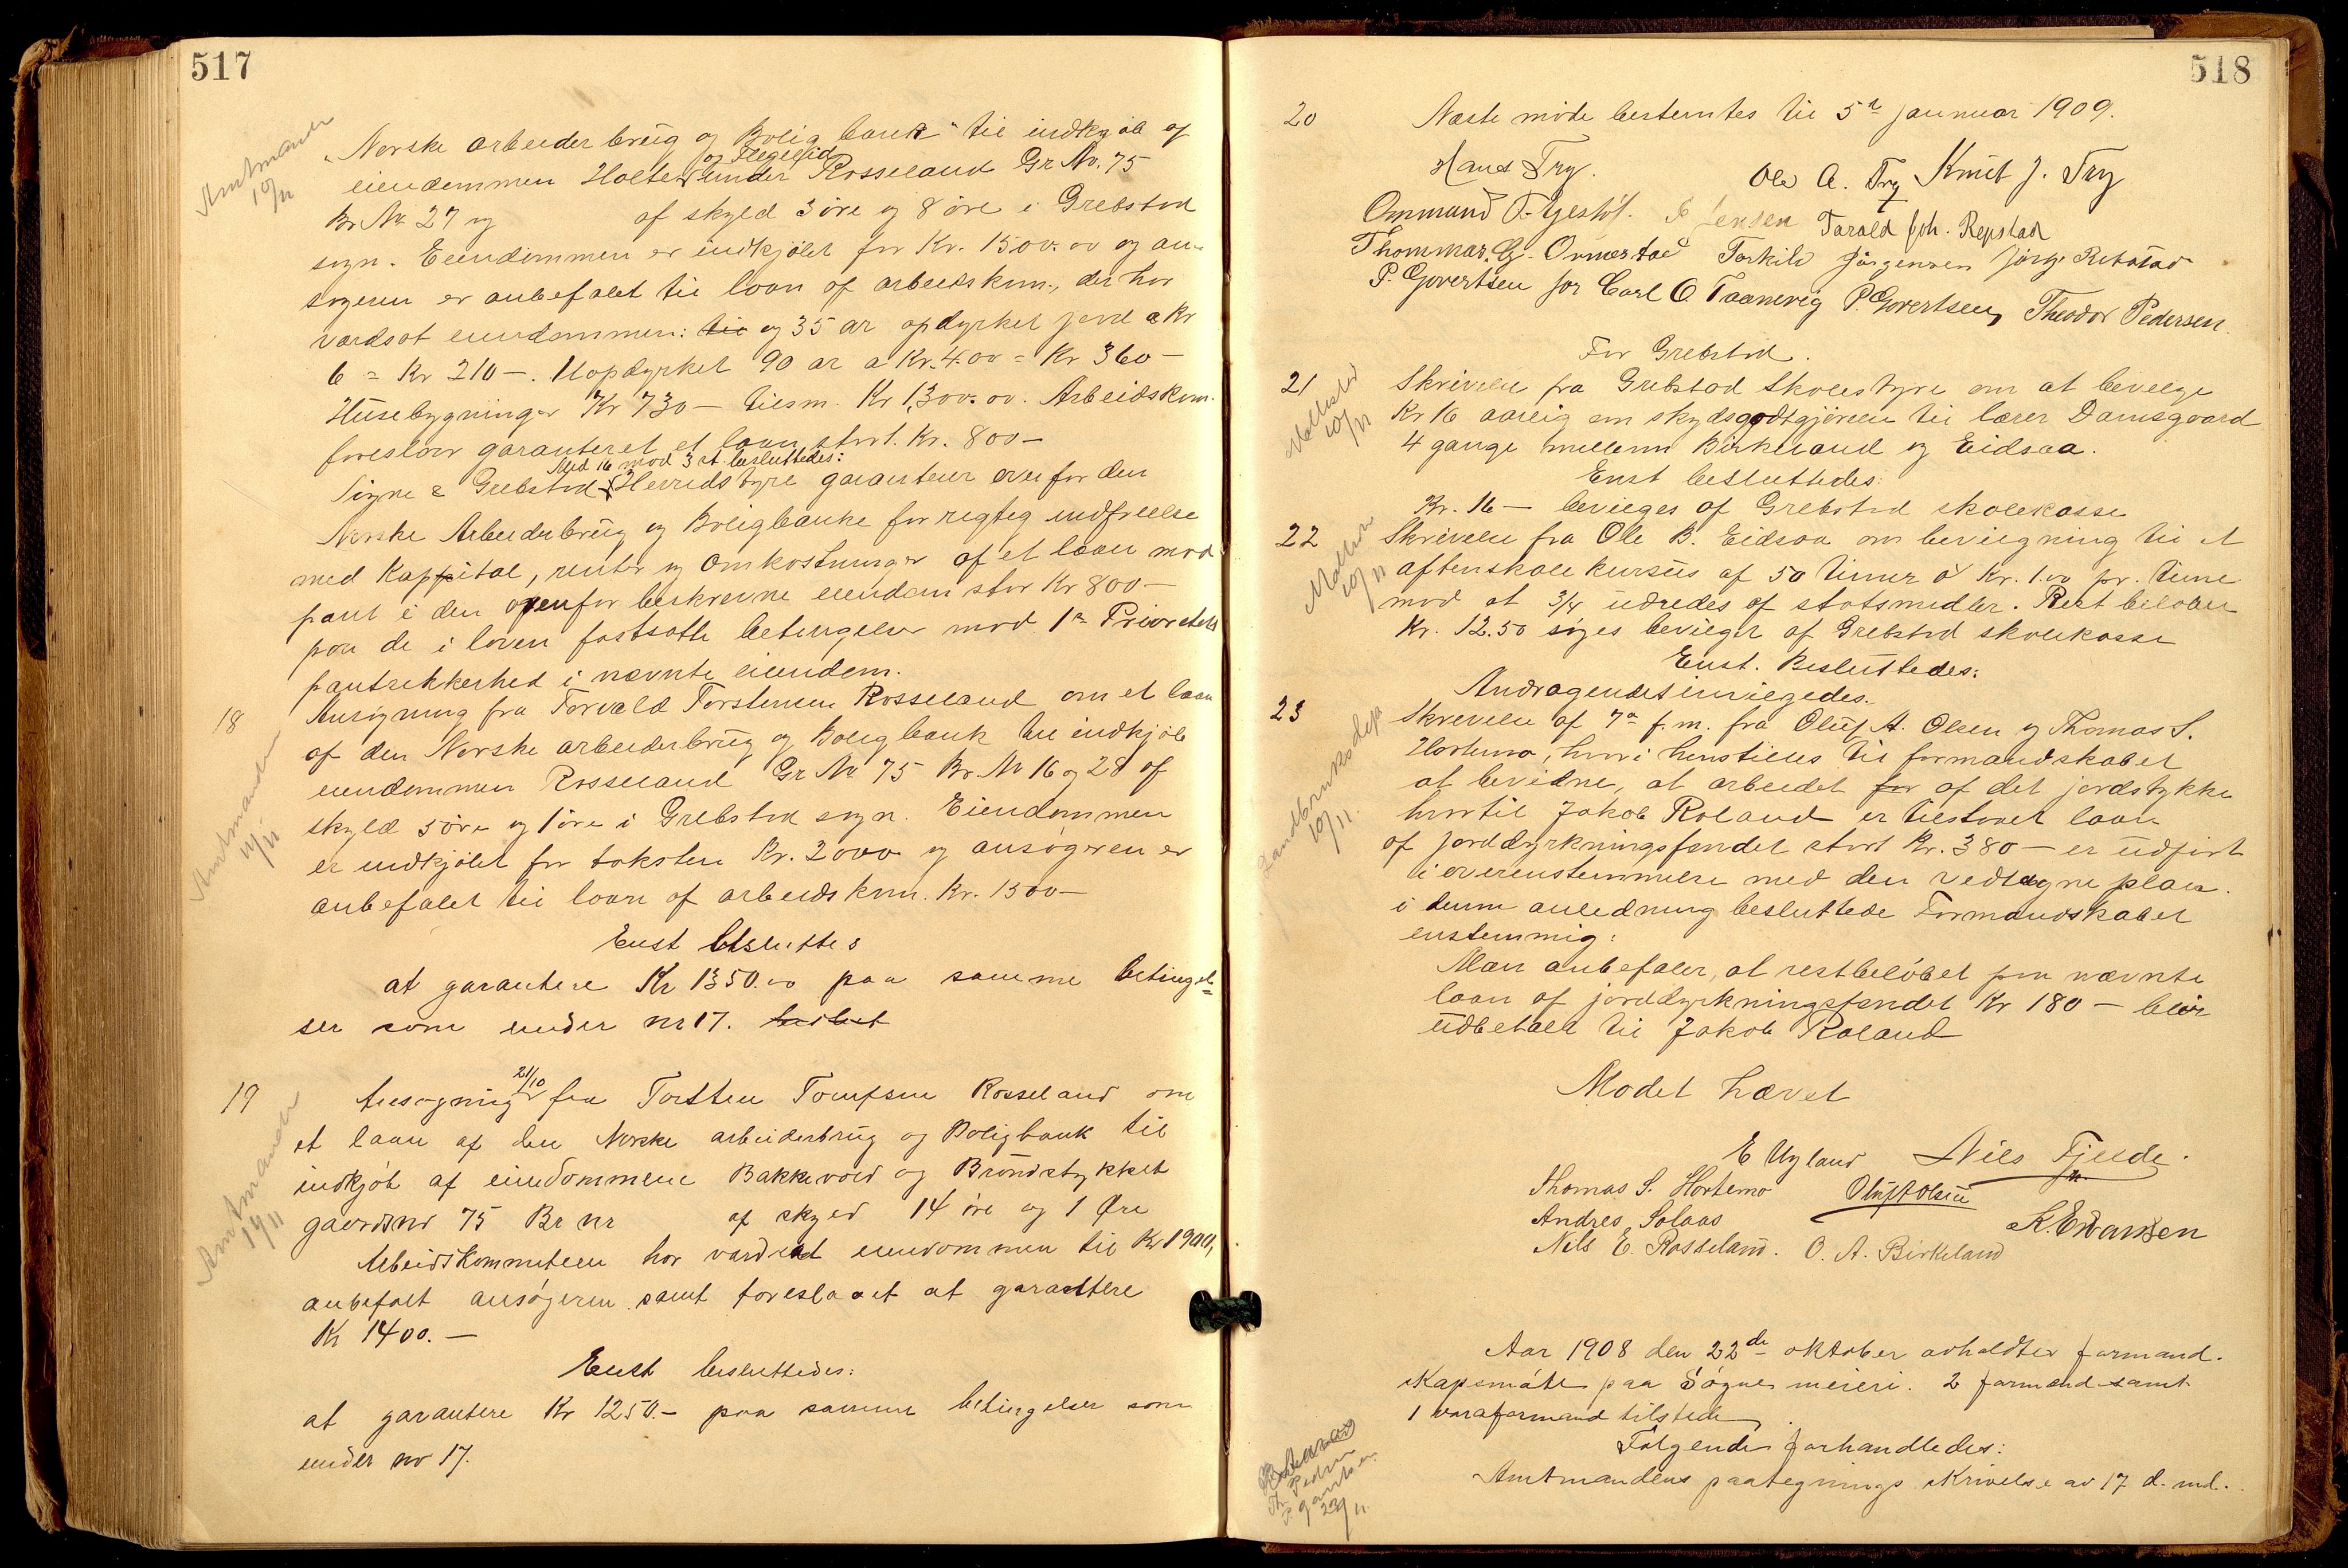 517
Amtmanden
10/11
"Norske arbeiderbrug og Bolig bank" til indkjøb af
og Flegelid
eiendommen Holte under Rosseland Gr No. 75
Br No 27 og af skyld 3 øre og 8 øre i Grebstad
sogn. Eiendommen er indkjøbt for Kr. 1500.00 og an-
søgeren er anbefalet til laan af arbeidskom., der har
værdsat eiendommen: til og 35 ar opdyrket jord a Kr
6 = Kr 210 —. Uopdyrket 90 ar a Kr. 4.00 = Kr 360 —
Husebygninger Kr 730 — tilsm. Kr 1,300.00. Arbeidskom.
foreslaar garanteret et laan stort Kr. 800 —
Med 16 mod 3 st. besluttedes:
Søgne & Grebstad Herredstyre garanterer overfor den
Norske Arbeiderbrug og Boligbanke for rigtig indfrielse
med Kappital, renter og omkostninger af et laan mod
pant i den ovenfor beskrevne eiendom stor Kr 800 —
paa de i loven fastsatte betingelser mod 1ste Prioritets
pantsikkerhed i nævnte eiendom.
18
Amtmanden
10/11
Ansøgning fra Torvald Torstensen Rosseland om et laan
af den Norske arbeiderbrug og Boligbank til indkjøb
eiendommen Rosseland Gr No 75 Br. No 16 og 28 af
skyld 5 øre og 1 øre i Grebstad sogn. Eiendommen
er indkjøbt for taksten Kr. 2000 og ansøgeren er
anbefalet til laan af arbeidskom. Kr. 1500 —
Enst besluttes
at garantere Kr 1350.00 paa samme betingel-
ser som under nr 17.
19
Amtmanden
10/11
Ansøgning 21/10 fra Torsten Tomesen Rosseland om
et laan af den Norske arbeiderbrug og Boligbank til
indkjøb af eiendommene Bakkevold og Brøndstykket
gaardsno 75 Br nr af skyld 14 øre og 1 Øre
Arbeidskommiteen har værdsat eiendommen til Kr 1900,
anbefalt ansøgeren samt foreslaaet at garantere
Kr 1400. —
Enst besluttedes:
at garantere Kr 1250. — paa samme betingelser som
under no 17.
518
20 Næste møde bestemtes til 5te januar 1909.
Hans Try. Ole A. Try Knut J. Try
Ommund T. Gjestøl. Jensen Tarald Joh. Repstad
Thommas. G. Ormestad Torkild Jørgensen Jørg. Repstad
P. Govertsen for Carl O Taanevig P. Govertsen, Theodor Pedersen.
For Grebstad.
21
Meddelt
10/11
Skrivelse fra Grebstad Skolestyre om at bevilge
Kr 16 aarlig om skydsgodtgjørelse til lærer Damsgaard
4 gange mellem Birkeland og Eidsaa.
Enst besluttedes:
Kr. 16 — bevilges af Grebstad skolekasse
22
Meddelt
10/11
Skrivelse fra Ole B. Eidsaa om bevilgning til et
aftenskole kursus af 50 timer à Kr. 1.00 pr. time
mod at 3/4 udredes af statsmidler. Rest beløbet
Kr. 12.50 søges bevilget af Grebstad skolekasse
Enst. Besluttedes:
Andragendet invilgedes.
23
Landbruksdep
10/11.
Skrivelse af 7de f.m. fra Oluf A. Olsen og Thomas S.
Hortemo, hvori henstilles til formandskabet
at bevidne, at arbeidet for af det jordstykke
hvortil Jakob Roland er tilstaaet laan
af jorddyrkningsfondet stort Kr. 380 — er udført
i overenstemmelse med den vedtagne plan.
i denne anledning besluttede Formandskabet
enstemmig:
Man anbefaler, at restbeløbet paa nævnte
laan af jorddyrkningsfondet Kr 180 — blir
udbetalt til Jakob Roland
Mødet hævet
E Ugland Nils Tjelde.
Thomas S. Hortemo Oluf A Olsen jr.
Andres Solaas K. Evensen
Nils E. Rosseland. O. A. Birkeland
Aar 1908 den 22de oktober avholdtes formand-
skapsmøte paa Søgne meieri. 2 formænd samt
1 varaformand tilstede.
Følgende forhandledes:
Th. Pedersen
23/11.
Amtmandens paategnings skrivelse av 17 d. md.